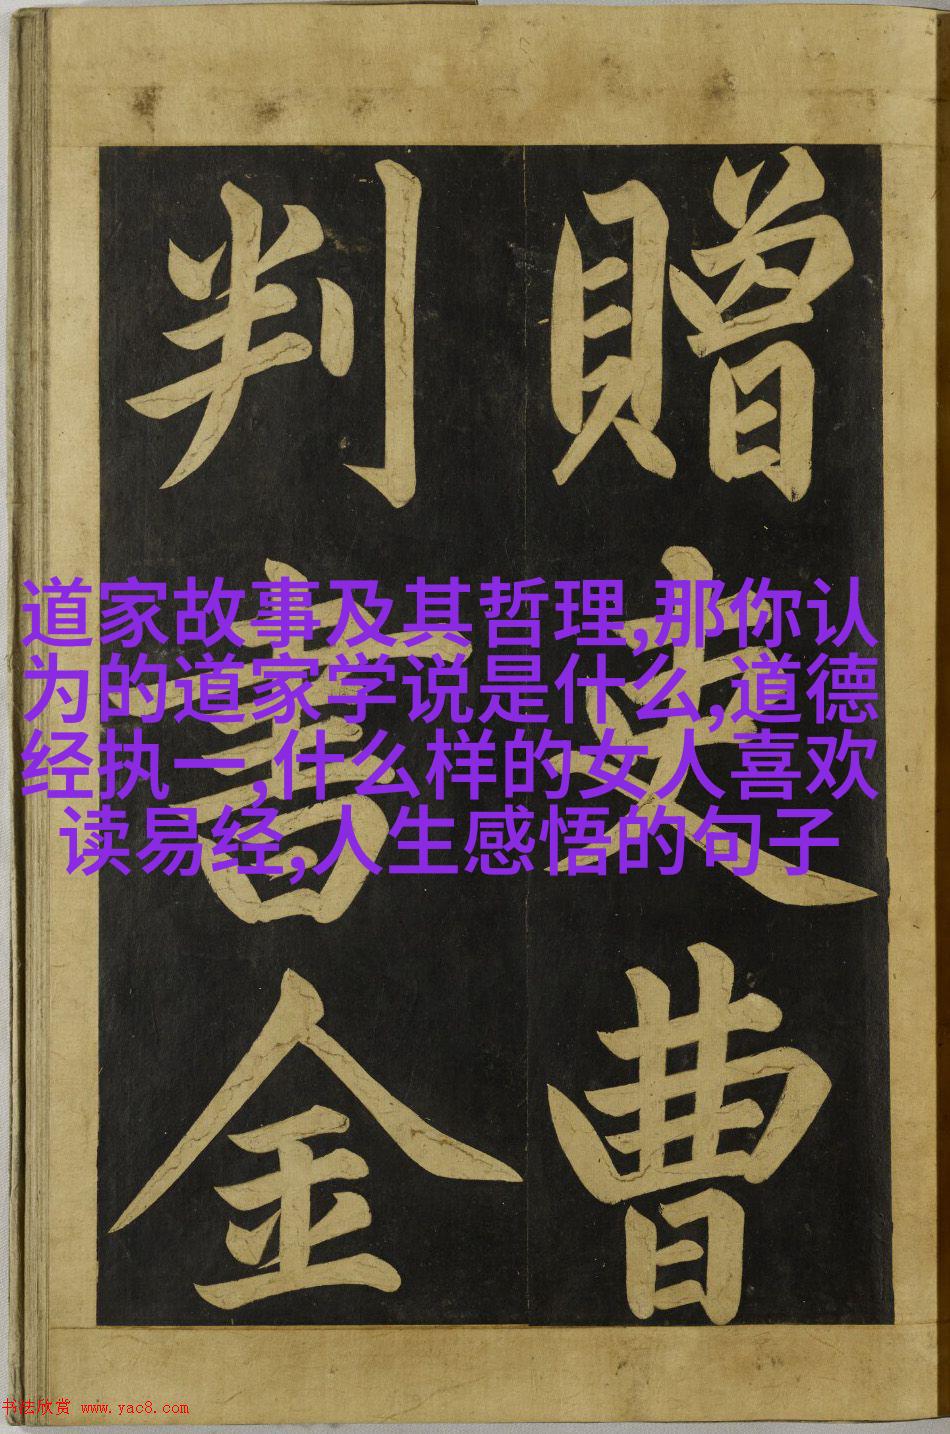 贈史曹
判書金
道家故事及其哲理,那你认
为的道家学说是什么,道德
经执一,什么样的女人喜欢
读易经,人生感悟的句子
书法欣赏 www.yac8.com